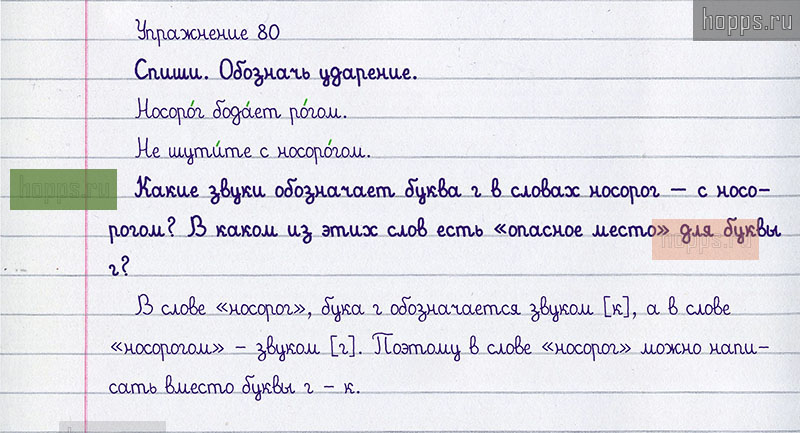 hopps.ru
Упражнение 80
Спиши. Обозначь ударение.
Носоро́г бода́ет ро́гом.
Не шути́те с носоро́гом.
hopps.ru
Какие звуки обозначает буква г в словах носорог — с носо-
рогом? В каком из этих слов есть «опасное место» для буквы
hopps.ru
г?
В слове «носорог», бука г обозначается звуком [к], а в слове
«носорогом» – звуком [г]. Поэтому в слове «носорог» можно напи-
сать вместо буквы г – к.